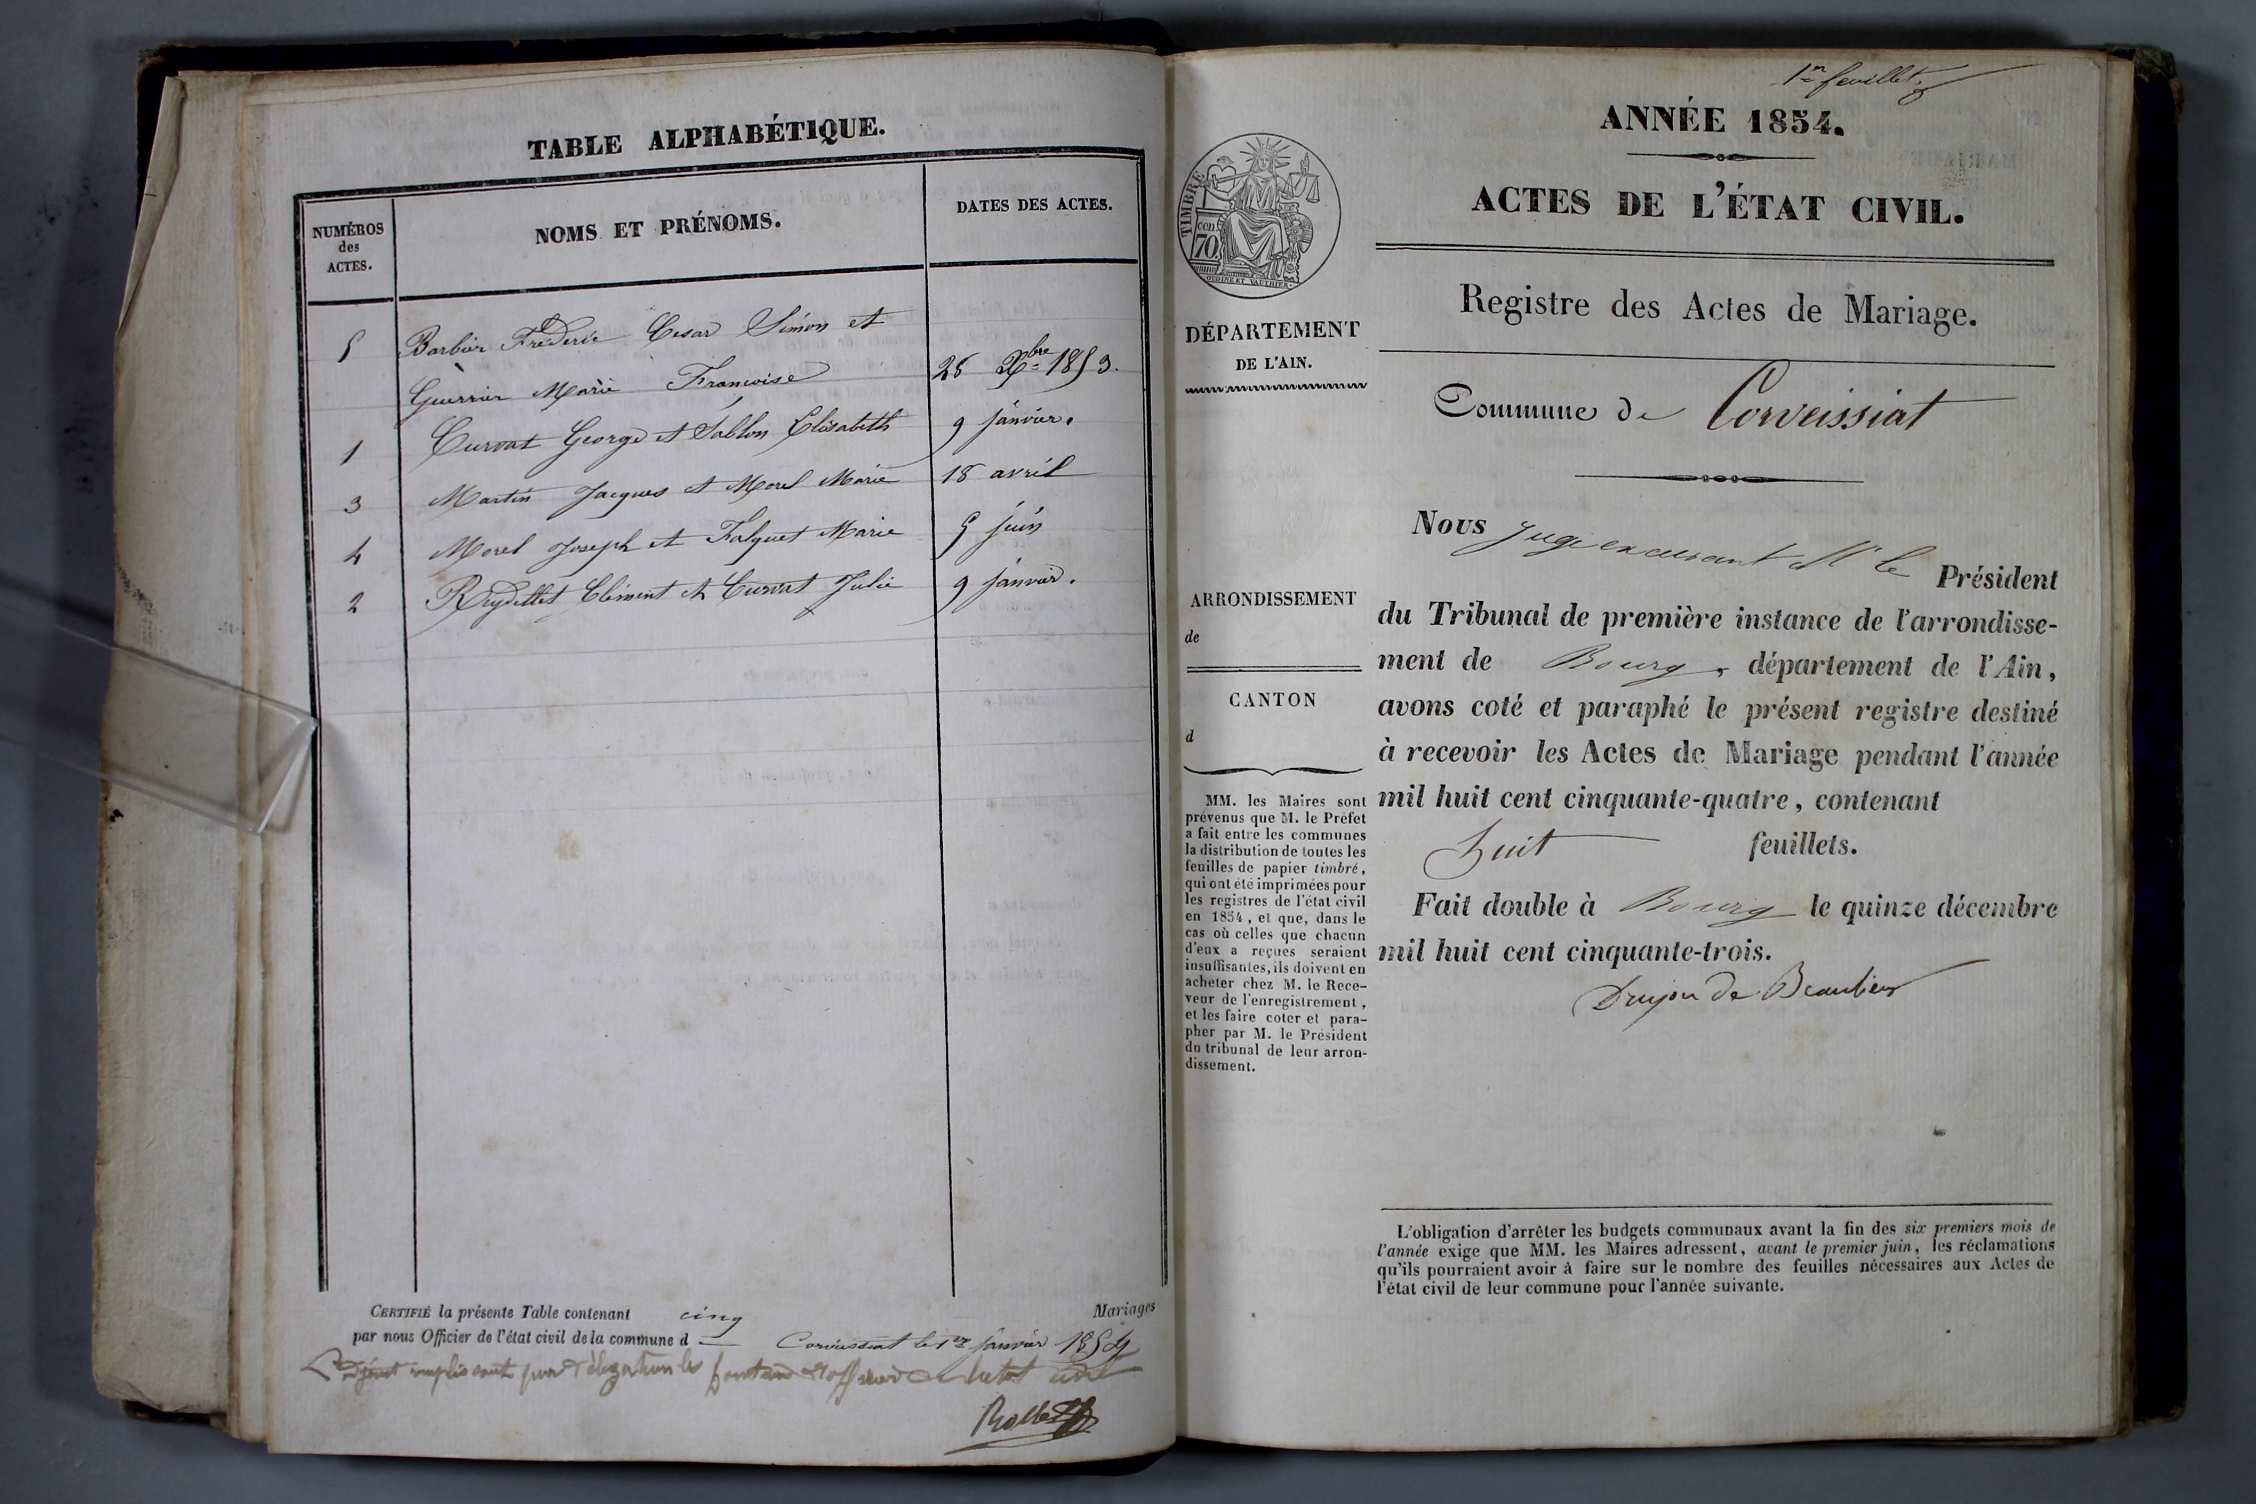 TABLE ALPHABÉTIQUE.
NUMÉROS
des
ACTES.
NOMS ET PRÉNOMS.
DATES DES ACTES.
5 Barbier Fréderic Cesar Simon et
Guerrier Marie Francoise 28 Xbre 1853.
1 Curvat George et Sablon Elisabeth 9 janvier.
3 Martin Jacques et Morel Marie 18 avril
4 Morel Joseph et Falquet Marie 5 juin
2 Reydellet Clément et Curvat Julie 9 janvier.
CERTIFIÉ la présente Table contenant cinq Mariages
par nous Officier de l'état civil de la commune d Corveissiat le 1er janvier 1854
adjoint remplissant par délégation les d'officier de l'etat civil
1er feuillet
ANNÉE 1854.
ACTES DE L'ÉTAT CIVIL.
TIMBRE
cen.
70
OUDINE ET VAUTHIER.
Registre des Actes de Mariage.
DÉPARTEMENT
DE L'AIN.
Commune de Corveissiat
Nous Juge excusant Mr le
Président
du Tribunal de première instance de l'arrondisse-
ment de Bourg, département de l'Ain,
avons coté et paraphé le présent registre destiné
à recevoir les Actes de Mariage pendant l'année
mil huit cent cinquante-quatre, contenant
huit feuillets.
Fait double à Bourg le quinze décembre
mil huit cent cinquante-trois.
Drujon de Beaulieu
ARRONDISSEMENT
de
CANTON
d
MM. les Maires sont
prévenus que M. le Préfet
a fait entre les communes
la distribution de toutes les
feuilles de papier timbré,
qui ont été imprimées pour
les registres de l'état civil
en 1854, et que, dans le
cas où celles que chacun
d'eux a reçues seraient
insuffisantes, ils doivent en
acheter chez M. le Rece-
veur de l'enregistrement,
et les faire coter et para-
pher par M. le Président
du tribunal de leur arron-
dissement.
L'obligation d'arrêter les budgets communaux avant la fin des six premiers mois de
l'année exige que MM. les Maires adressent, avant le premier juin, les réclamations
qu'ils pourraient avoir à faire sur le nombre des feuilles nécessaires aux Actes de
l'état civil de leur commune pour l'année suivante.